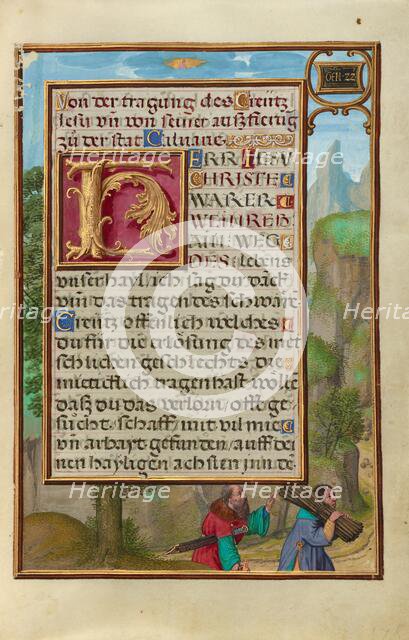 GEN 22
Von der tragung des Creütz
Jesu vn̄ von seiner auszfierūg
zu der stat Caluarie
HERR IHESV
CHRISTE
WARER
WEINREB
AIN WEG
DES lebens
vnser haylsch sag du dāck
vm̄ das tragen des schwārē
Creütz offenlich welches
du für die erlösung des mēt
schlichen geschlechts die
mitticklich tragen hast wolle
dasz du das verlorn schäffle ge
sücht schaff mit vil mie
vn̄ arbayt gefunden auff dei
nen hayligen achslen in̄ dē
Heritage
Heritage
Heritage
Heritage
Heritage
Heritage
Heritage
Heritage